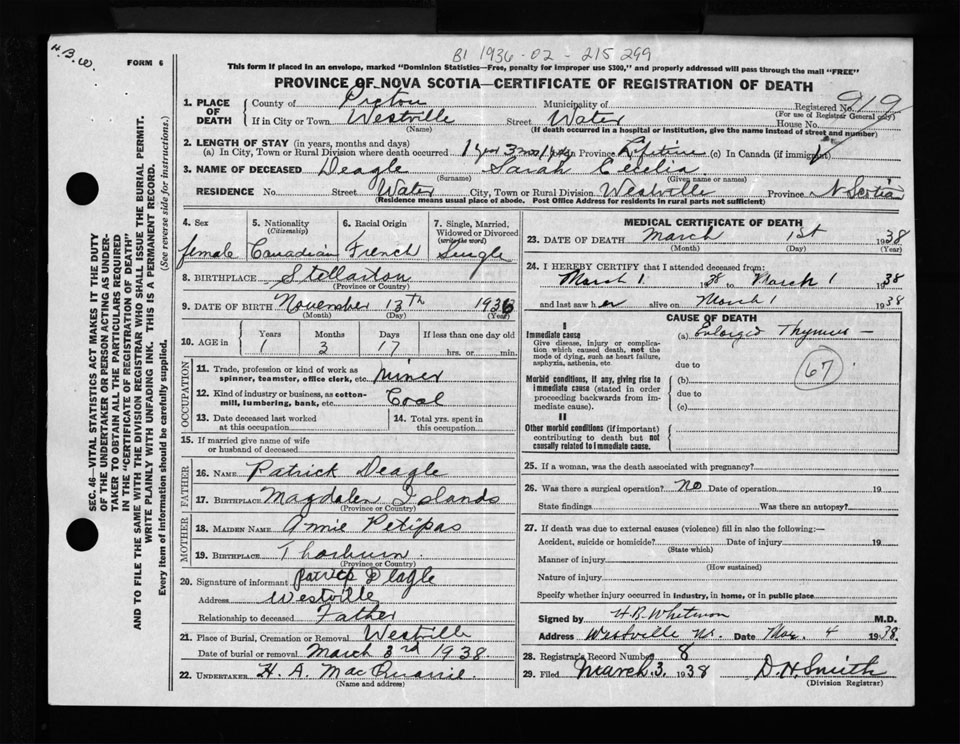 H.B.W.
FORM 6
B1 1936-02-215 299
This form if placed in an envelope, marked "Dominion Statistics—Free, penalty for improper use $300," and properly addressed will pass through the mail "FREE"
PROVINCE OF NOVA SCOTIA—CERTIFICATE OF REGISTRATION OF DEATH
SEC. 46—VITAL STATISTICS ACT MAKES IT THE DUTY
OF THE UNDERTAKER OR PERSON ACTING AS UNDER-
TAKER TO OBTAIN ALL THE PARTICULARS REQUIRED
IN THE "CERTIFICATE OF REGISTRATION OF DEATH"
AND TO FILE THE SAME WITH THE DIVISION REGISTRAR WHO SHALL ISSUE THE BURIAL PERMIT.
WRITE PLAINLY WITH UNFADING INK. THIS IS A PERMANENT RECORD.
Every item of information should be carefully supplied. (See reverse side for instructions.)
1. PLACE OF DEATH County of Pictou Municipality of Registered No. 919
(For use of Registrar General only)
If in City or Town Westville Street Water House No.
(Name) (If death occurred in a hospital or institution, give the name instead of street and number)
2. LENGTH OF STAY (in years, months and days)
(a) In City, Town or Rural Division where death occurred 1 yr 3 mos 17 ds Province Lifetime (c) In Canada (if immigrant)
3. NAME OF DECEASED Deagle Sarah Cecelia
(Surname) (Given name or names)
RESIDENCE No. Street Water City, Town or Rural Division Westville Province N Scotia
(Residence means usual place of abode. Post Office Address for residents in rural parts not sufficient)
4. Sex 5. Nationality (Citizenship) 6. Racial Origin 7. Single, Married, Widowed or Divorced (write the word)
female Canadian French Single
8. BIRTHPLACE Stellarton
(Province or Country)
9. DATE OF BIRTH November 13th 1936
(Month) (Day) (Year)
10. AGE in Years Months Days If less than one day old
1 3 17 hrs. or min.
OCCUPATION
11. Trade, profession or kind of work as spinner, teamster, office clerk, etc. Miner
12. Kind of industry or business, as cotton-mill, lumbering, bank, etc. Coal
13. Date deceased last worked at this occupation 14. Total yrs. spent in this occupation
15. If married give name of wife or husband of deceased
FATHER
16. Name Patrick Deagle
17. Birthplace Magdalen Islands
(Province or Country)
MOTHER
18. MAIDEN NAME Annie Petipas
19. BIRTHPLACE Thorburn
(Province or Country)
20. Signature of informant Patrick Deagle
Address Westville
Relationship to deceased Father
21. Place of Burial, Cremation or Removal Westville
Date of burial or removal March 3rd 1938.
22. UNDERTAKER H. A. MacQuarrie
(Name and address)
MEDICAL CERTIFICATE OF DEATH
23. DATE OF DEATH March 1st 1938
(Month) (Day) (Year)
24. I HEREBY CERTIFY that I attended deceased from:
March 1 1938 to March 1 1938
and last saw her alive on March 1 1938
CAUSE OF DEATH
I
Immediate cause
Give disease, injury or complication which caused death, not the mode of dying, such as heart failure, asphyxia, asthenia, etc.
(a) Enlarged Thymus —
due to
Morbid conditions, if any, giving rise to immediate cause (stated in order proceeding backwards from immediate cause).
(b)
due to
(c)
67
II
Other morbid conditions (if important) contributing to death but not causally related to immediate cause.
25. If a woman, was the death associated with pregnancy?
26. Was there a surgical operation? No Date of operation 19
State findings Was there an autopsy?
27. If death was due to external causes (violence) fill in also the following:—
Accident, suicide or homicide? Date of injury 19
(State which)
Manner of injury
(How sustained)
Nature of injury
Specify whether injury occurred in industry, in home, or in public place
Signed by H B Whitman M.D.
Address Westville N.S. Date Mar. 4 1938.
28. Registrar's Record Number 8
29. Filed March 3. 1938 D. H. Smith
(Division Registrar)